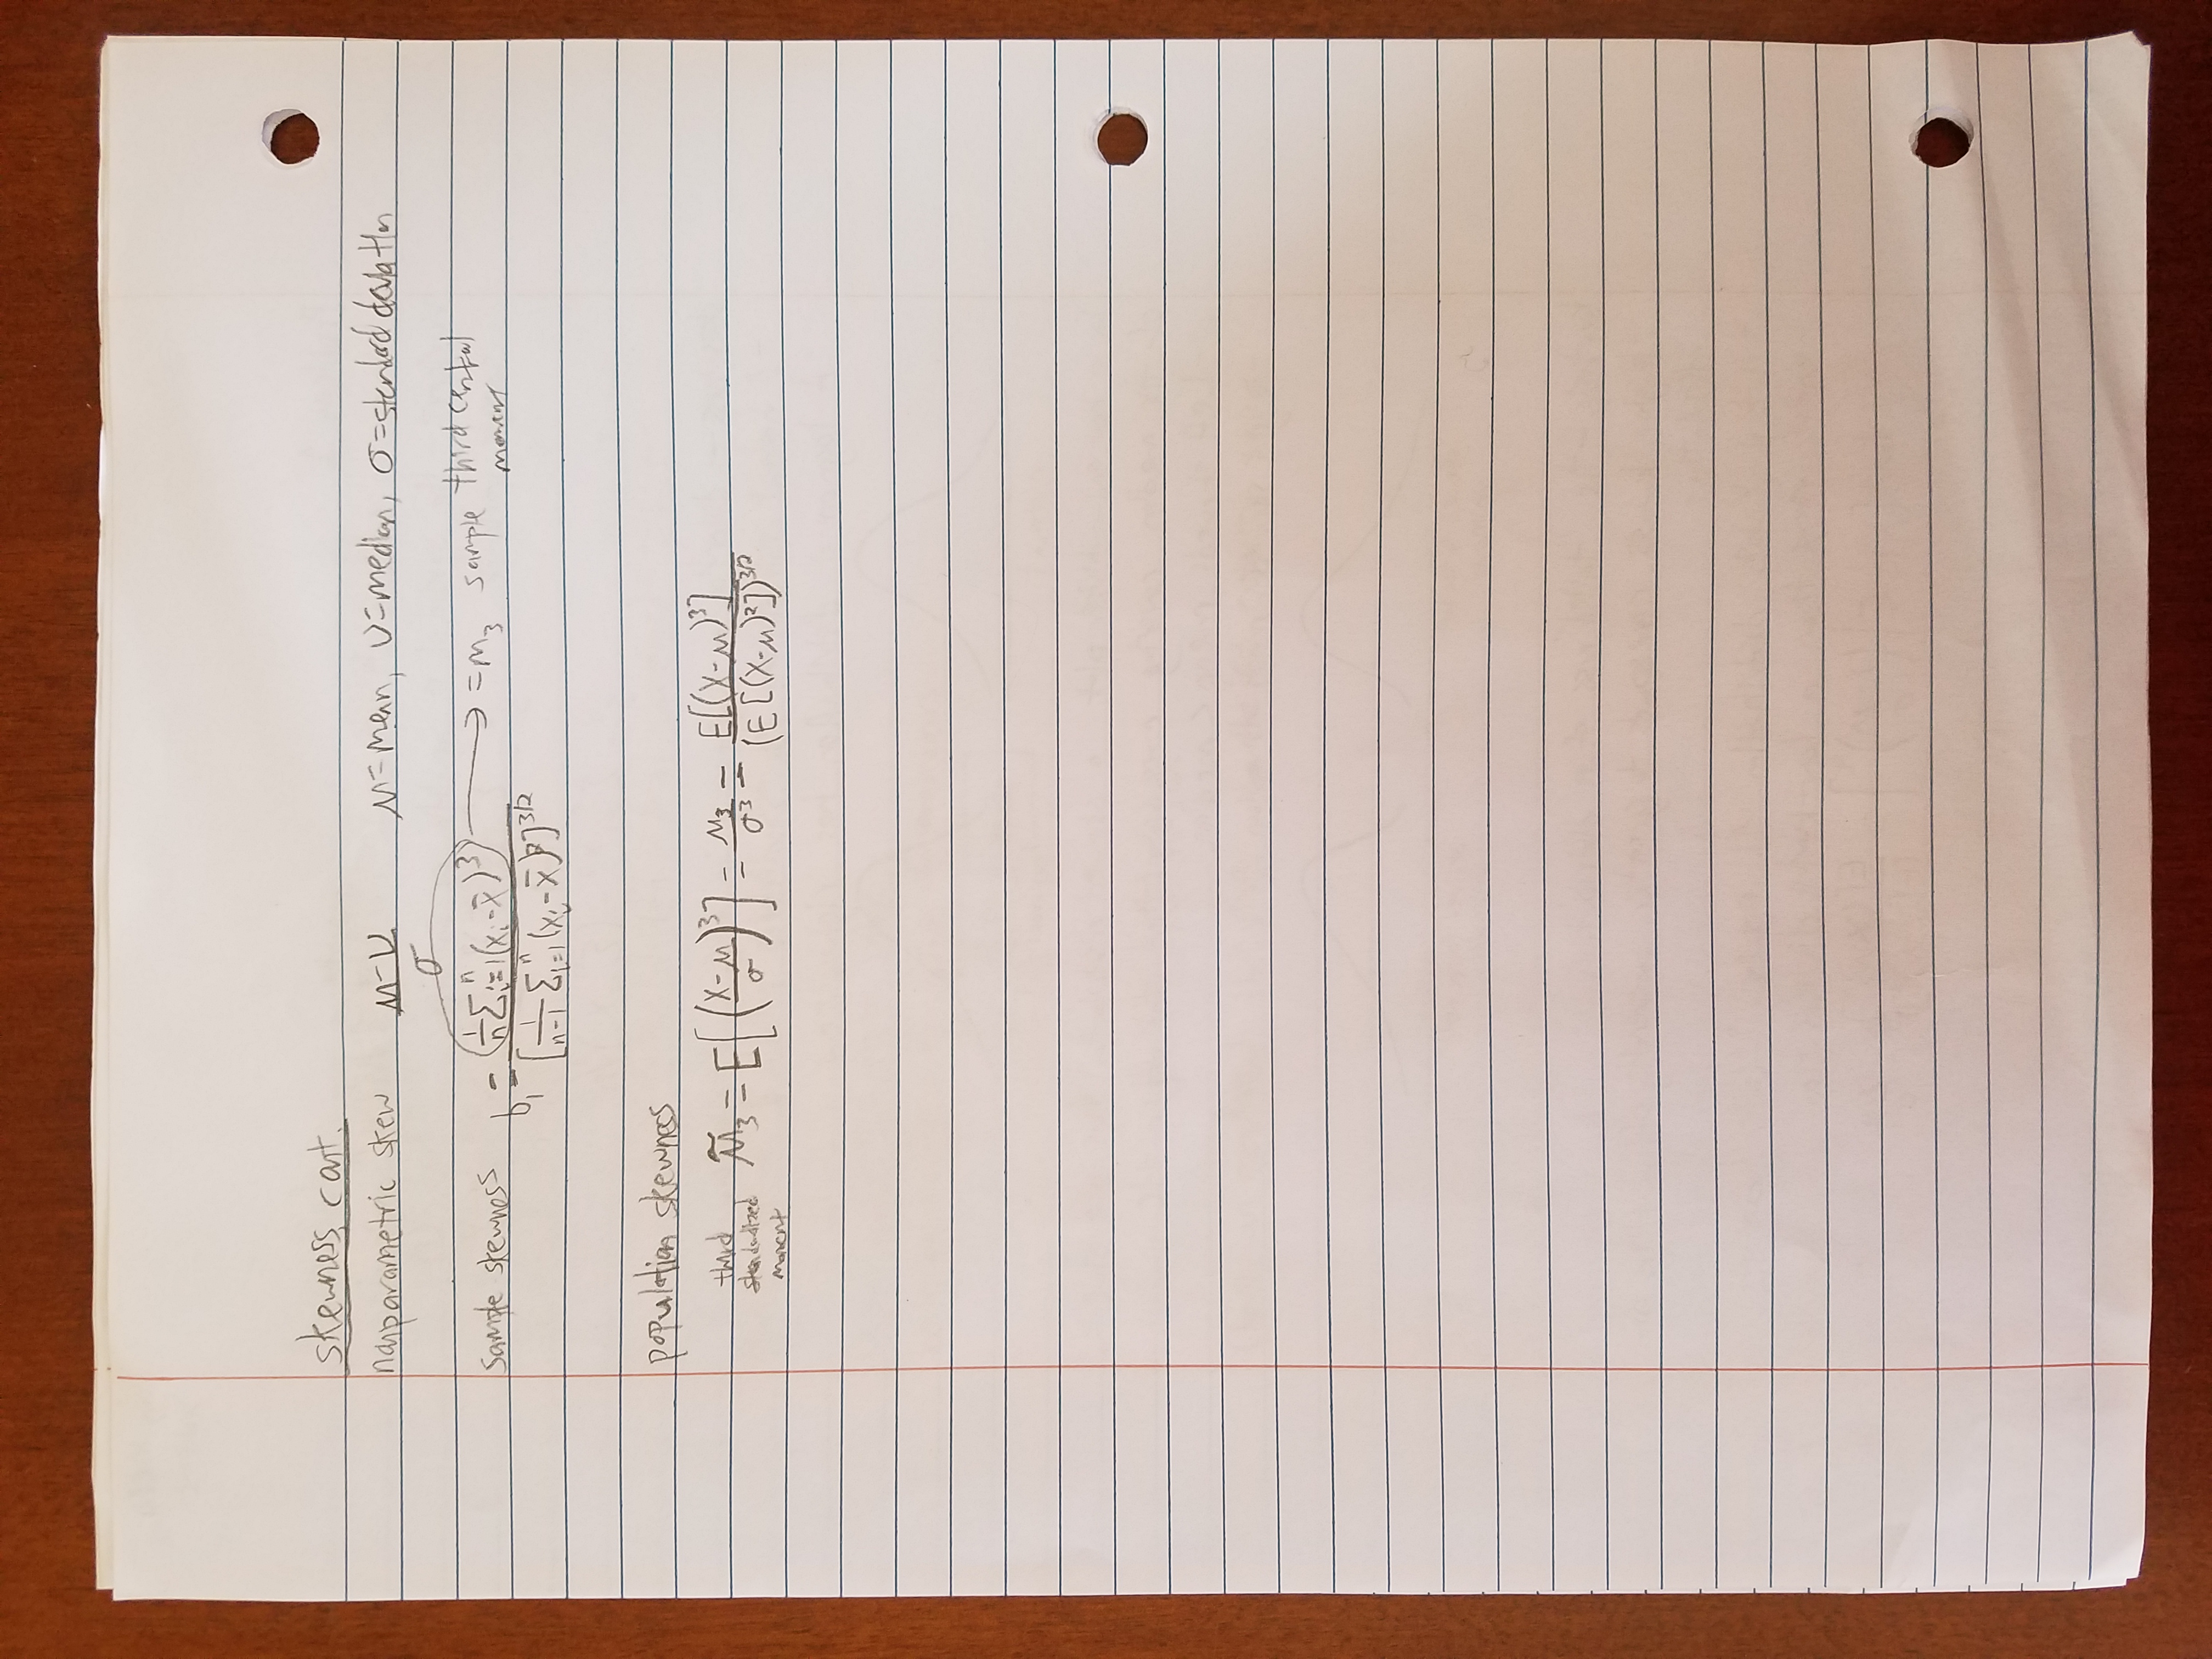 skewness, cont.
nonparametric skew (μ-ν)/σ μ=mean, ν=median, σ=standard deviation
sample skewness b₁ = (1/n Σⁿᵢ₌₁(xᵢ-x̄)³) / [1/(n-1) Σⁿᵢ₌₁(xᵢ-x̄)²]^3/2 → =m₃ sample third central moment
population skewness
third standardized moment μ̃₃ = E[((X-μ)/σ)³] = μ₃/σ³ = E[(X-μ)³]/(E[(X-μ)²])^3/2